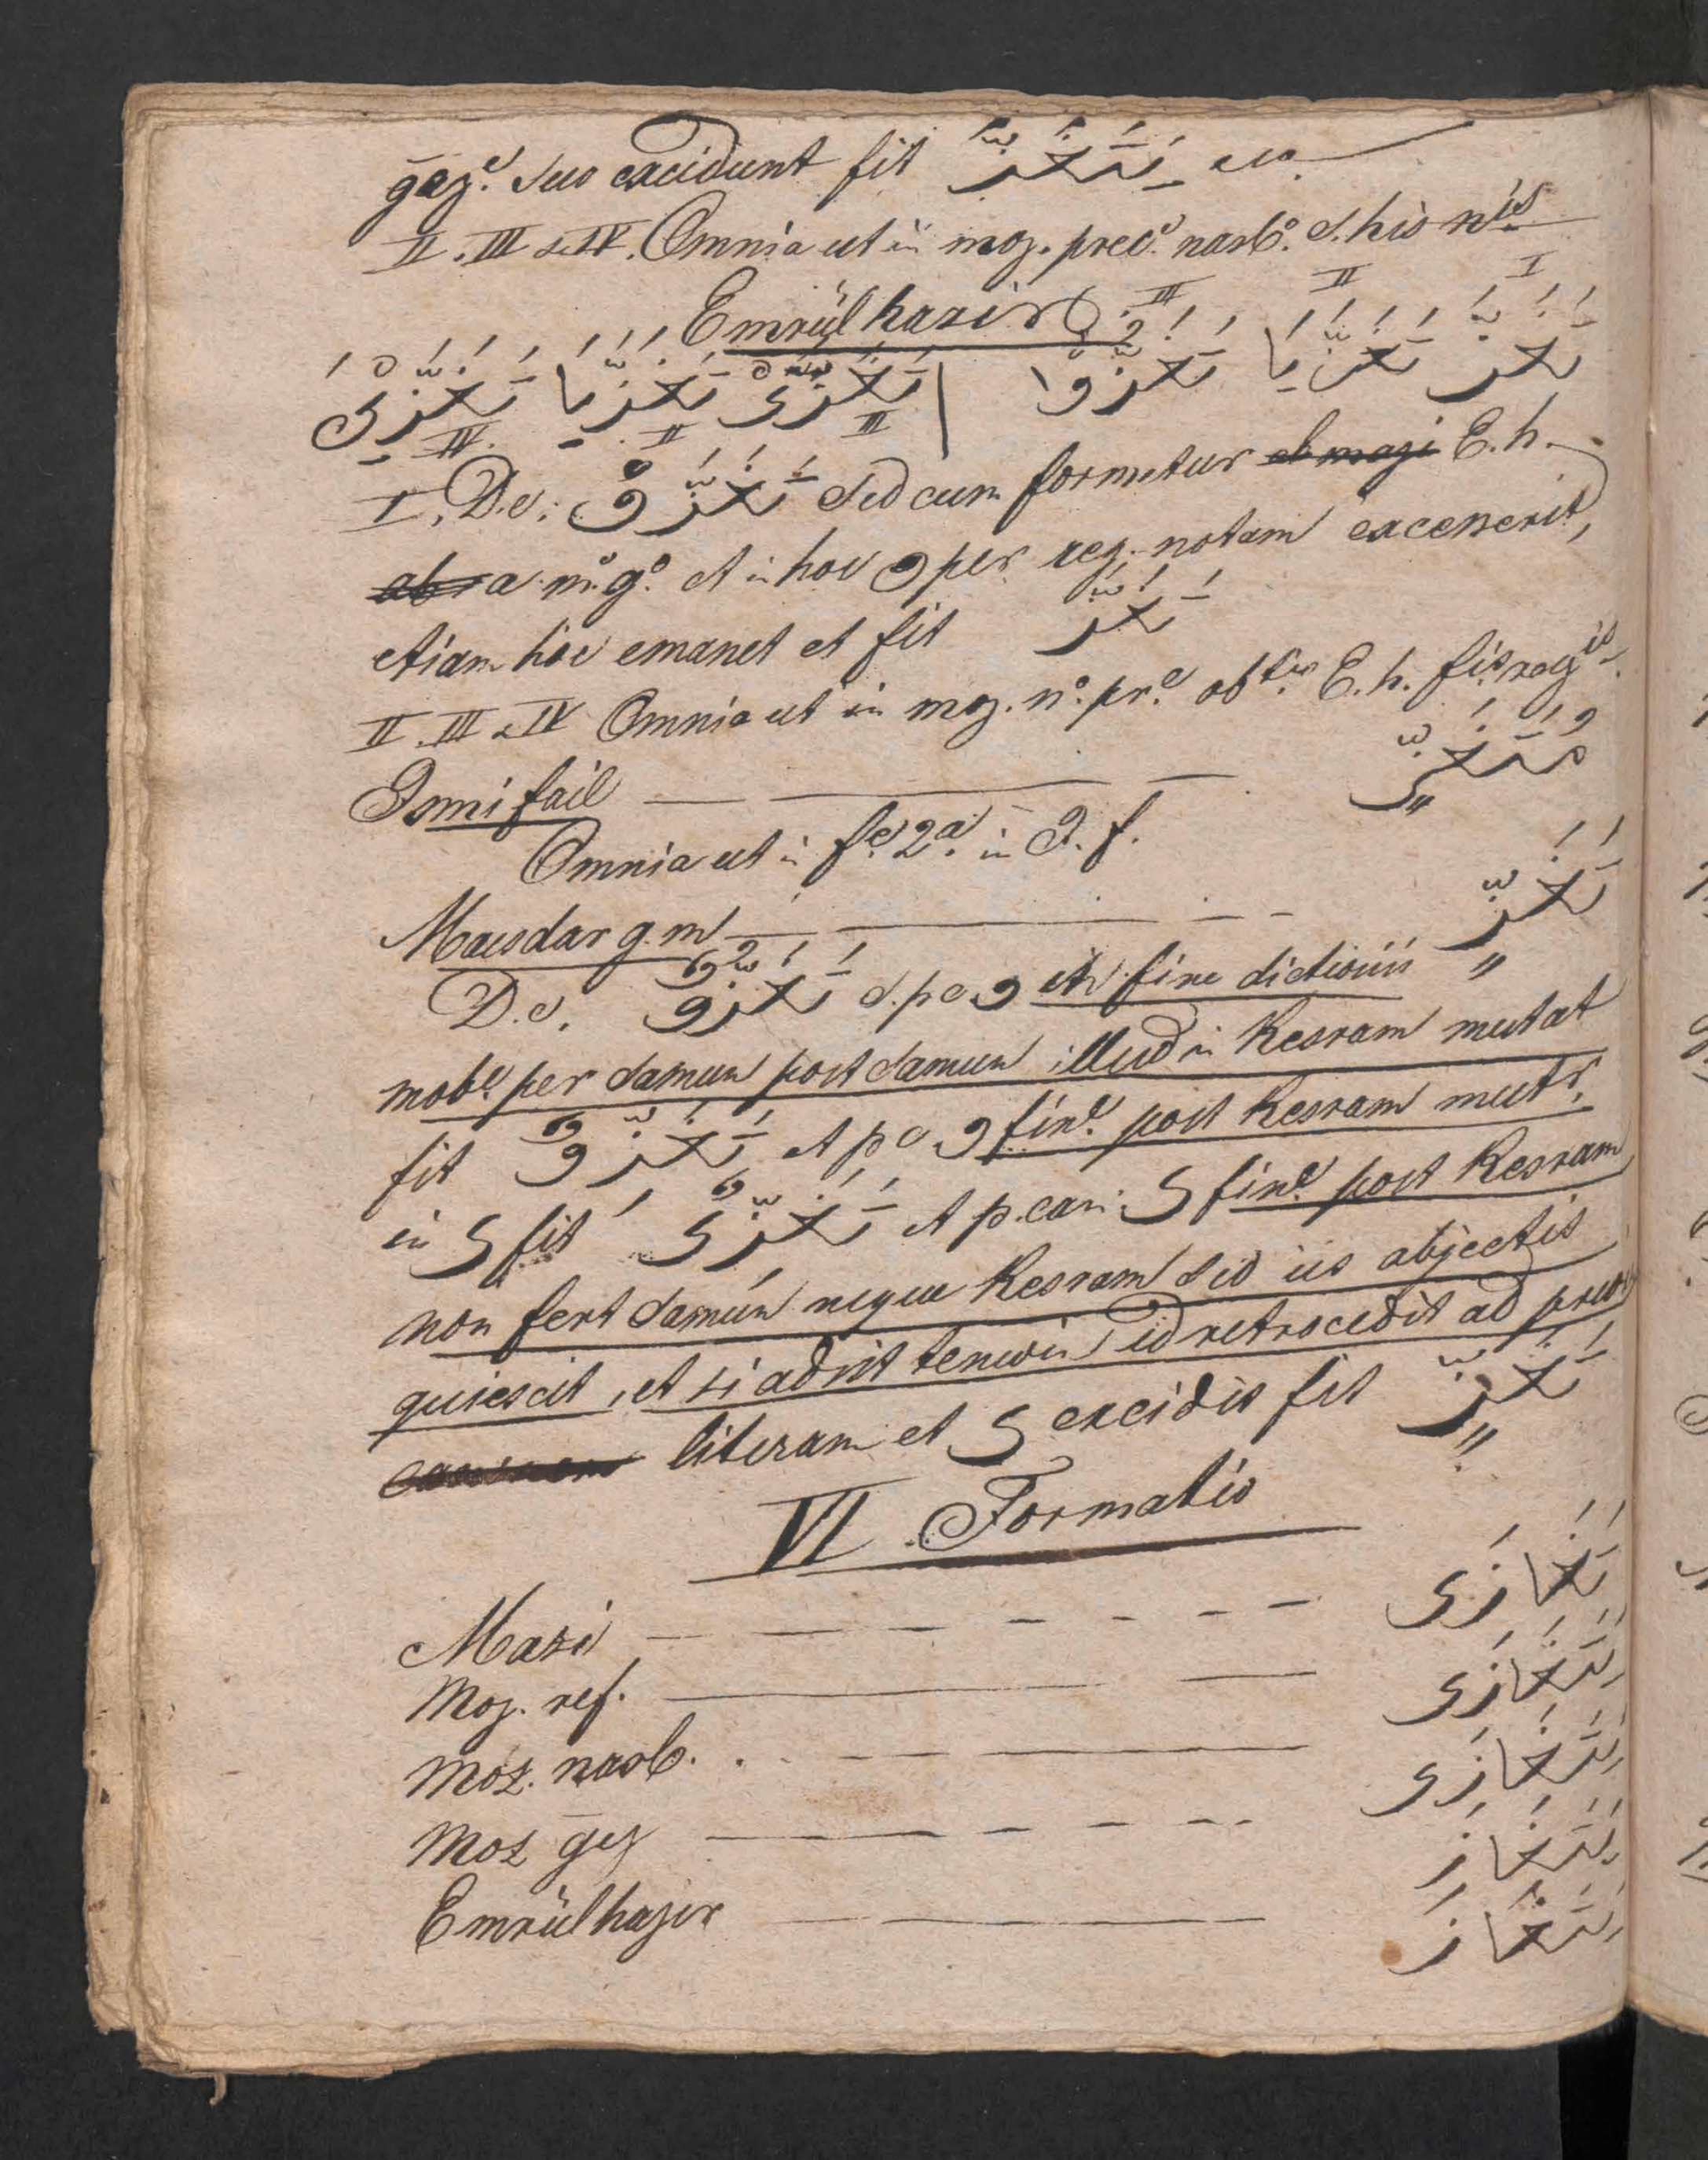 gez.e suo excidunt fit يَتَغَزَّ etc.
II. III & IV. Omnia ut in moz. prec.e nasb.o s. his nis
Emrülhazir
III II I
تَغَزَّ تَغَزَّيَا تَغَزَّوْا | تَغَزَّىْ تَغَزَّيَا تَغَزَّيْنَ
IV. II III
I. D.e: تَغَزَّوْ sed cum formetur ab mazi E. h.
ab a m.o g.o et in hoc و per reg. notam excesserit,
etiam hoc emanet et fit تَغَزَّ
II. III & IV Omnia ut in moz. n.o pr.e E. h.
Ismi fail مُتَغَزٍّ
Omnia ut in f.e 2.a in I. f.
Masdar g. m تَغَزٍّ
D.e. تَغَزُّوٌ s. p c و in fine dictionis
mob.e per damun post damun illud in Kesram mutat
fit تَغَزِّوٌ et p c و fin.e post Kesram mutr.
in ى fit تَغَزِّىٌ et p. can. ى fin.e post Kesram
non fert damun neque Kesram sed iis abjectis
quiescit, et si adsit tenwin id retrocedit ad prec.
literam et ى excidit fit تَغَزٍّ
VI. Formatio
Mazi تَغَازَى
Moz. ref. يَتَغَازَى
Moz. nasb. يَتَغَازَى
Moz gez يَتَغَازَ
Emrülhazir تَغَازَ